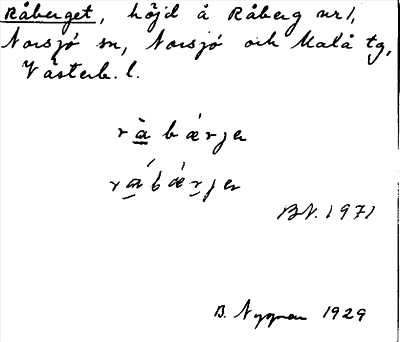 Råberget, höjd å Råberg nr 1,
Norsjö sn, Norsjö och Malå tg,
Västerb. l.
rå̀bǽrjer
rá̱bǽṟjer
BN. 1971
B. Nygren 1929